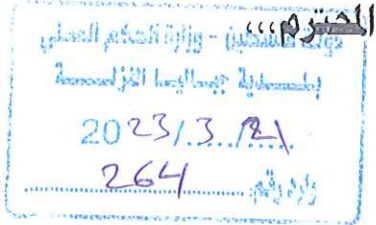 المحترم،،،
دولة فلسطين - وزارة الحكم المحلي
بلـــدية جباليا النزلـــة
2023/3/21
وارد رقم: 264